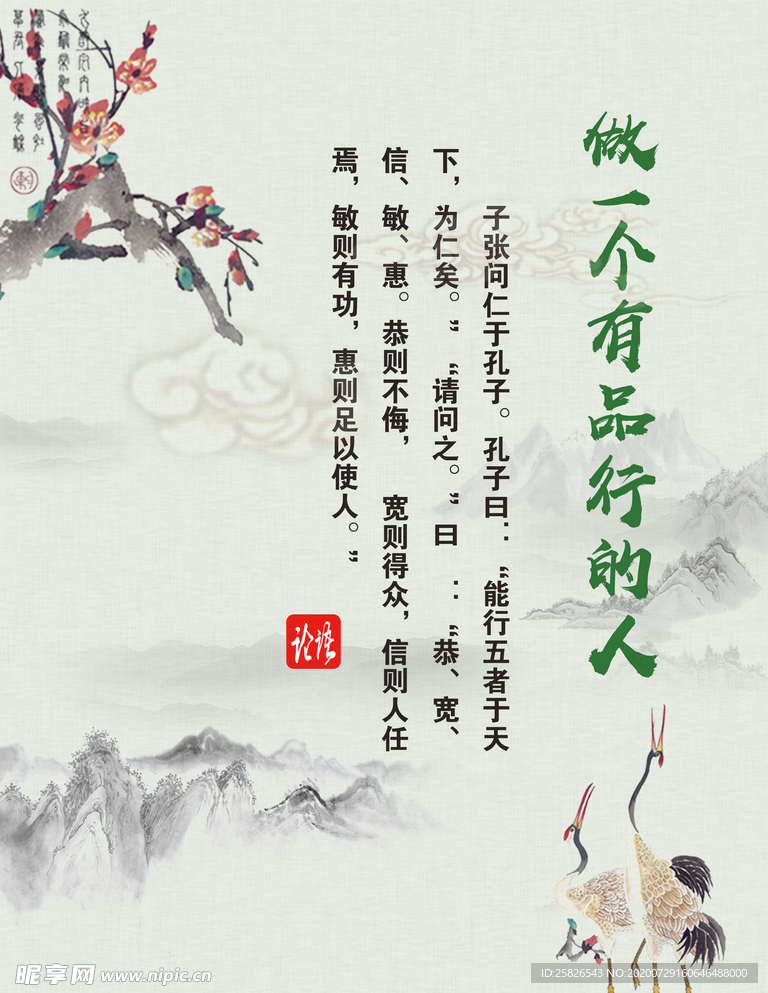 做一个有品行的人
子张问仁于孔子。孔子曰：“能行五者于天
下，为仁矣。”“请问之。”曰：“恭、宽、
信、敏、惠。恭则不侮，宽则得众，信则人任
焉，敏则有功，惠则足以使人。”
论语
昵享网 www.nipic.cn
ID:25826543 NO:20200729160646488000